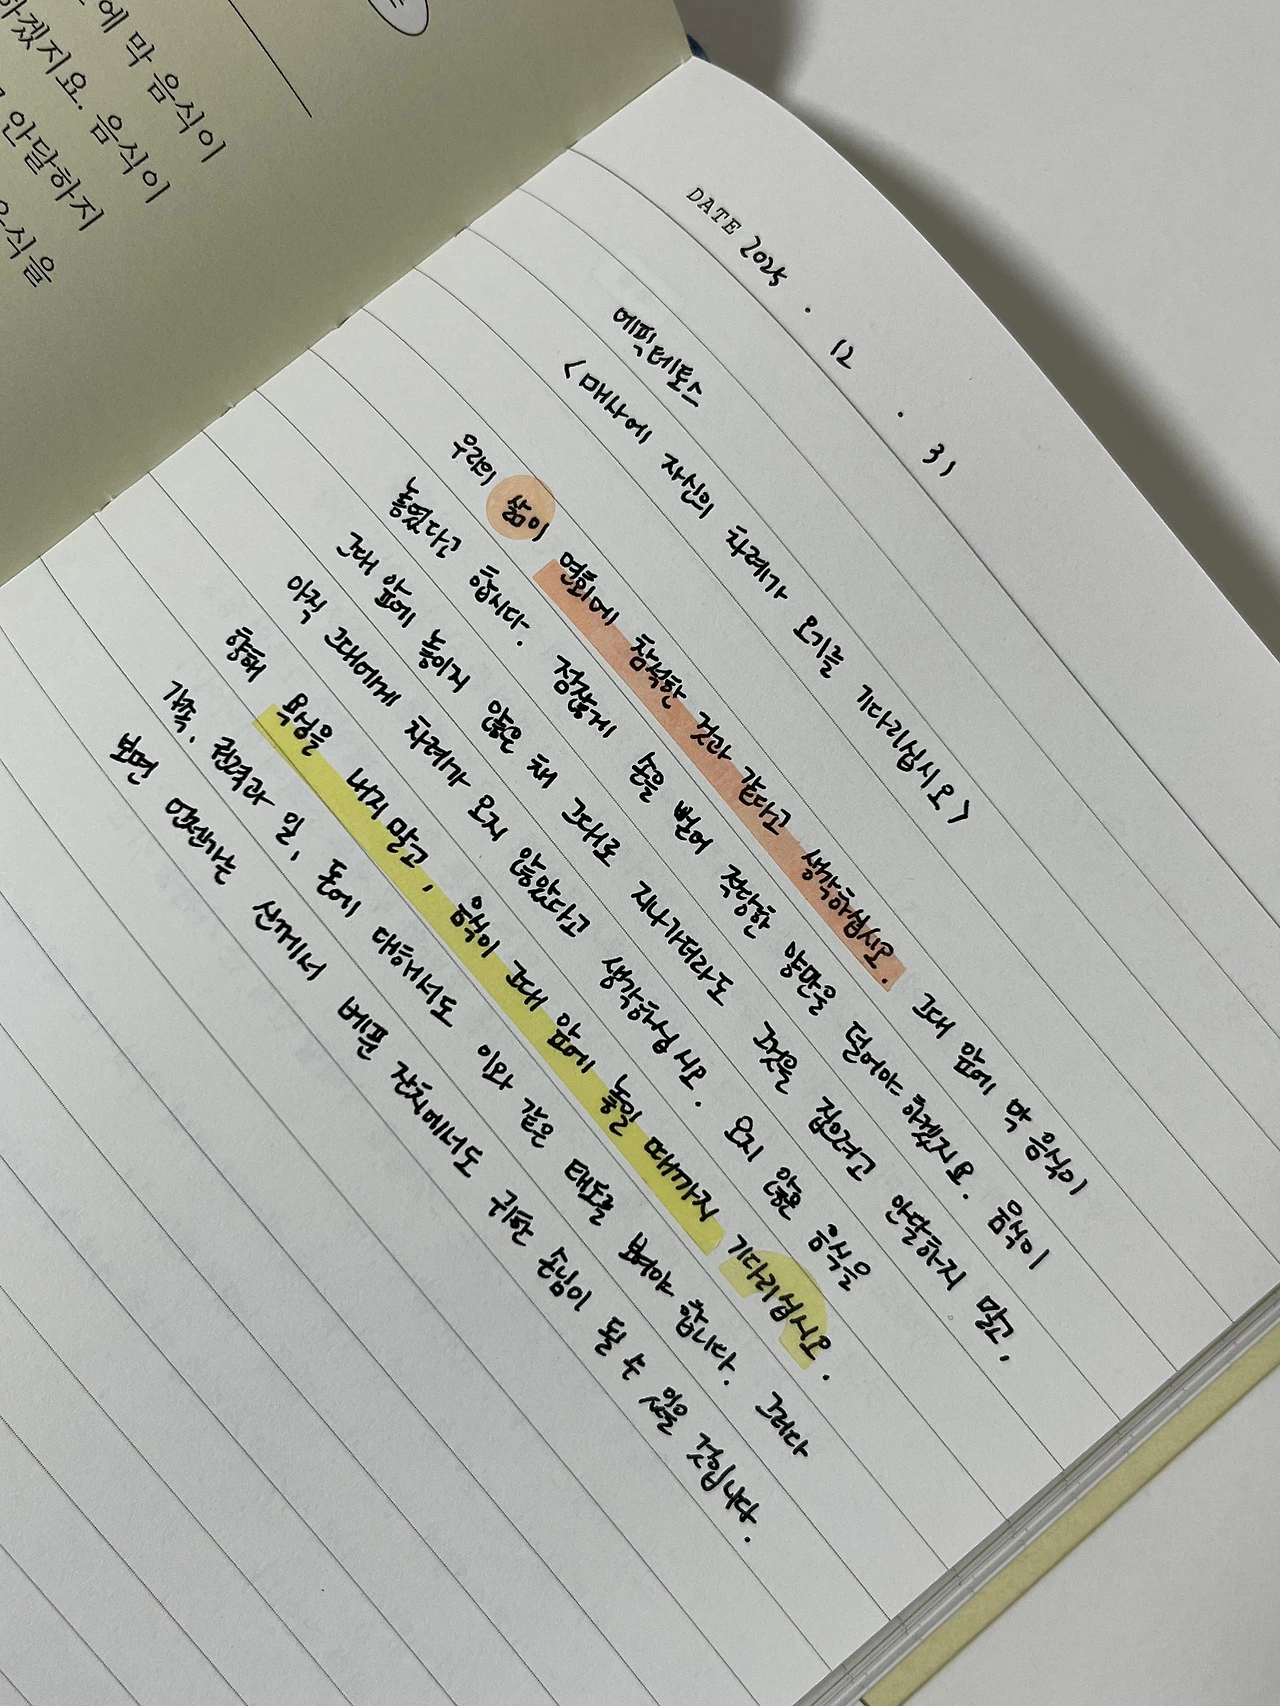 에 막 음식이
하겠지요. 음식이
안달하지
음식을
DATE 2025 . 12 . 31
에픽테토스
<매사에 자신의 차례가 오기를 기다리십시오>
우리의 삶이 연회에 참석한 것과 같다고 생각하십시오. 그대 앞에 막 음식이
놓였다고 합시다. 점잖게 손을 뻗어 적당한 양만을 덜어야 하겠지요. 음식이
그대 앞에 놓이지 않은 채 그대로 지나가더라도 그것을 집으려고 안달하지 말고,
아직 그대에게 차례가 오지 않았다고 생각하십시오. 오지 않은 음식을
향해 욕심을 내지 말고, 음식이 그대 앞에 놓일 때까지 기다리십시오.
가족, 권력과 일, 돈에 대해서도 이와 같은 태도를 보여야 합니다. 그러다
보면 언젠가는 신께서 베푼 잔치에서도 귀한 손님이 될 수 있을 것입니다.